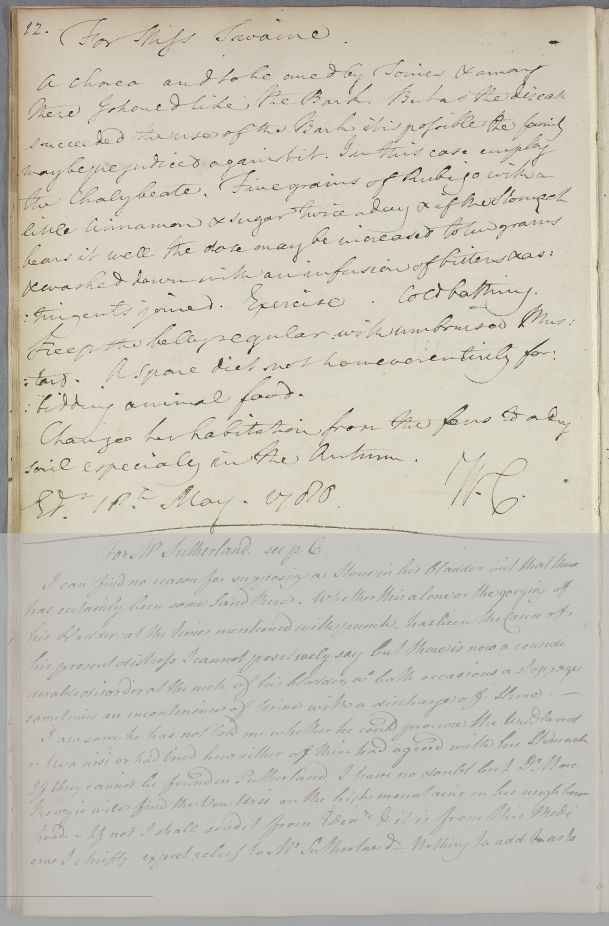 12.
For Miss Swaine.
A chorea and to be cured by Tonics & among
there Gohome'd like the Bark. But as the disease
succeeded the use of the Bark it is possible the family
may be prejudiced against it. In this case employ
the Chalybeate. Five grains of Rubigo with a
little Cinnamon & sugar twice a day & if the stomach
bears it well the dose may be increased to ten grains
& washed down with an infusion of bitters & as:
:tringents joined. Exercise. Cold bathing.
Keep the belly regular with unbruised Mus:
:tard. A spare diet not however entirely for:
:bidding animal food.
Change her habitation from the fens to a dry
soil especialy in the Autumn.
Ed.r 18.th May. 1788. W.C.
For Mr. Sutherland. see p. 6.
I can find no reason for supposing a Stone in his Bladder but that there
has certainly been some Sand there. Whether this alone or the gorging of
his bladder at the times mentioned with punch, has been the Cause of
his present distress I cannot positively say but there is now a conside
derable disorder at the neck of his bladder wc both occasions a stoppage
sometimes an incontinence of Urine with a discharge of Slime. —
I am sorry he has not told me whether he could procure the Wild Carrot
or Uva ursi or had tried how either of them had agreed with his Stomach
If they cannot be found in Sutherland I have no doubt but Dr. Mac
Kenzie will find the Uva Ursi on the high mountains in his neighbour
hood. - If not I shall send it from Edenr. & it is from this Medi
cine I chiefly expect relief to Mr. Sutherland - Nothing to add as to